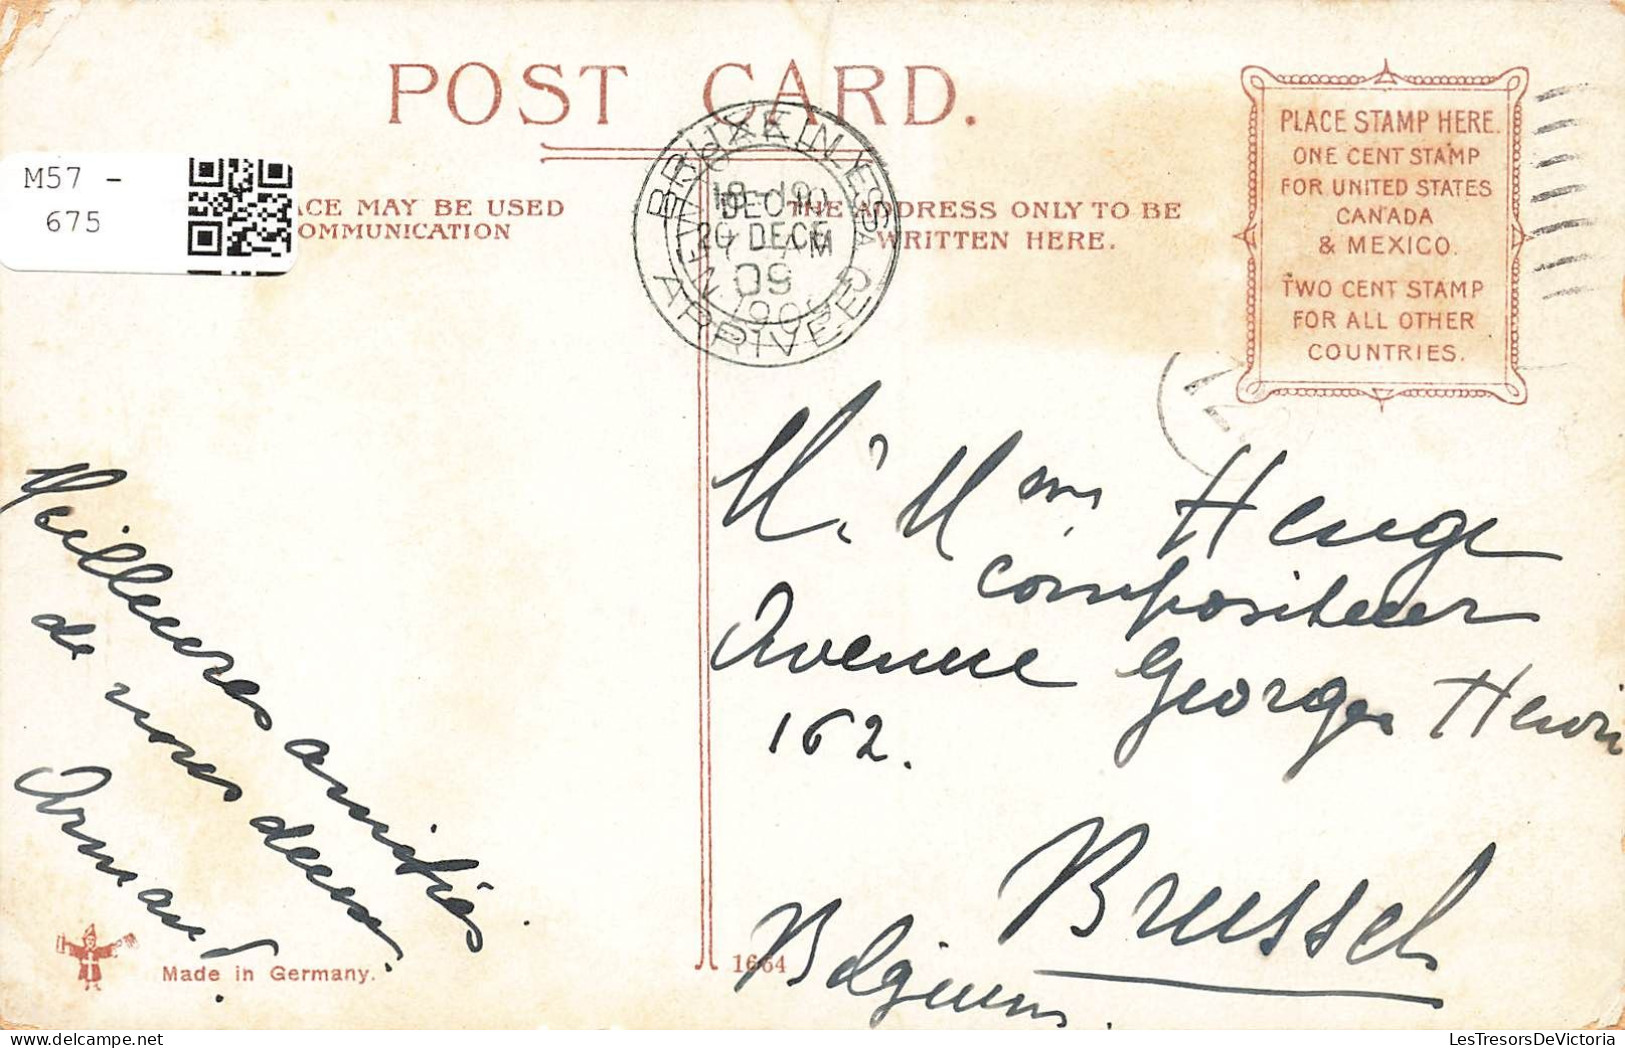 POST CARD.
M57 -
675
ACE MAY BE USED
OMMUNICATION
THE ADDRESS ONLY TO BE
WRITTEN HERE.
PLACE STAMP HERE.
ONE CENT STAMP
FOR UNITED STATES
CANADA
& MEXICO.
TWO CENT STAMP
FOR ALL OTHER
COUNTRIES.
BRUXELLES
ARRIVEE
DEC 10
20 DECE
7 AM
09
1909
Meilleures amitiés
de nous deux.
Armand.
Mr Mme Heuge
compositeur
Avenue Georges Henri
162.
Brussels
Belgium.
Made in Germany.
1664
LesTresorsDeVictoria